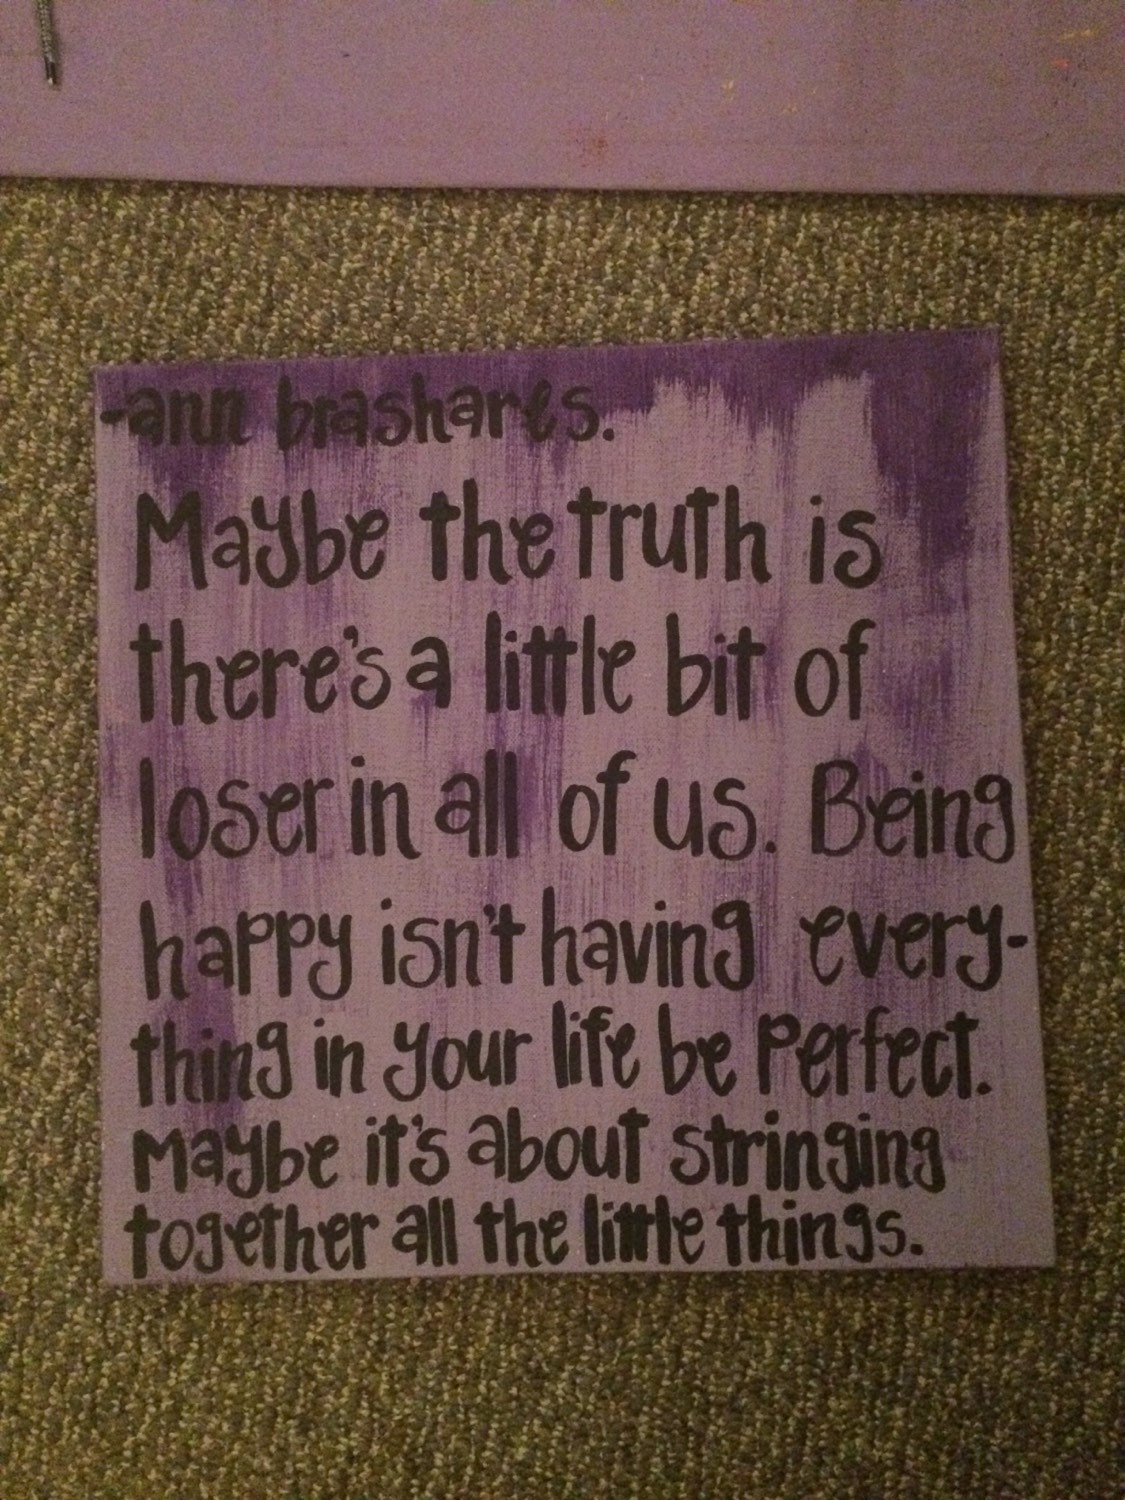 -ann brashares.
Maybe the truth is
there's a little bit of
loser in all of us. Being
happy isn't having every-
thing in your life be perfect.
Maybe it's about stringing
together all the little things.